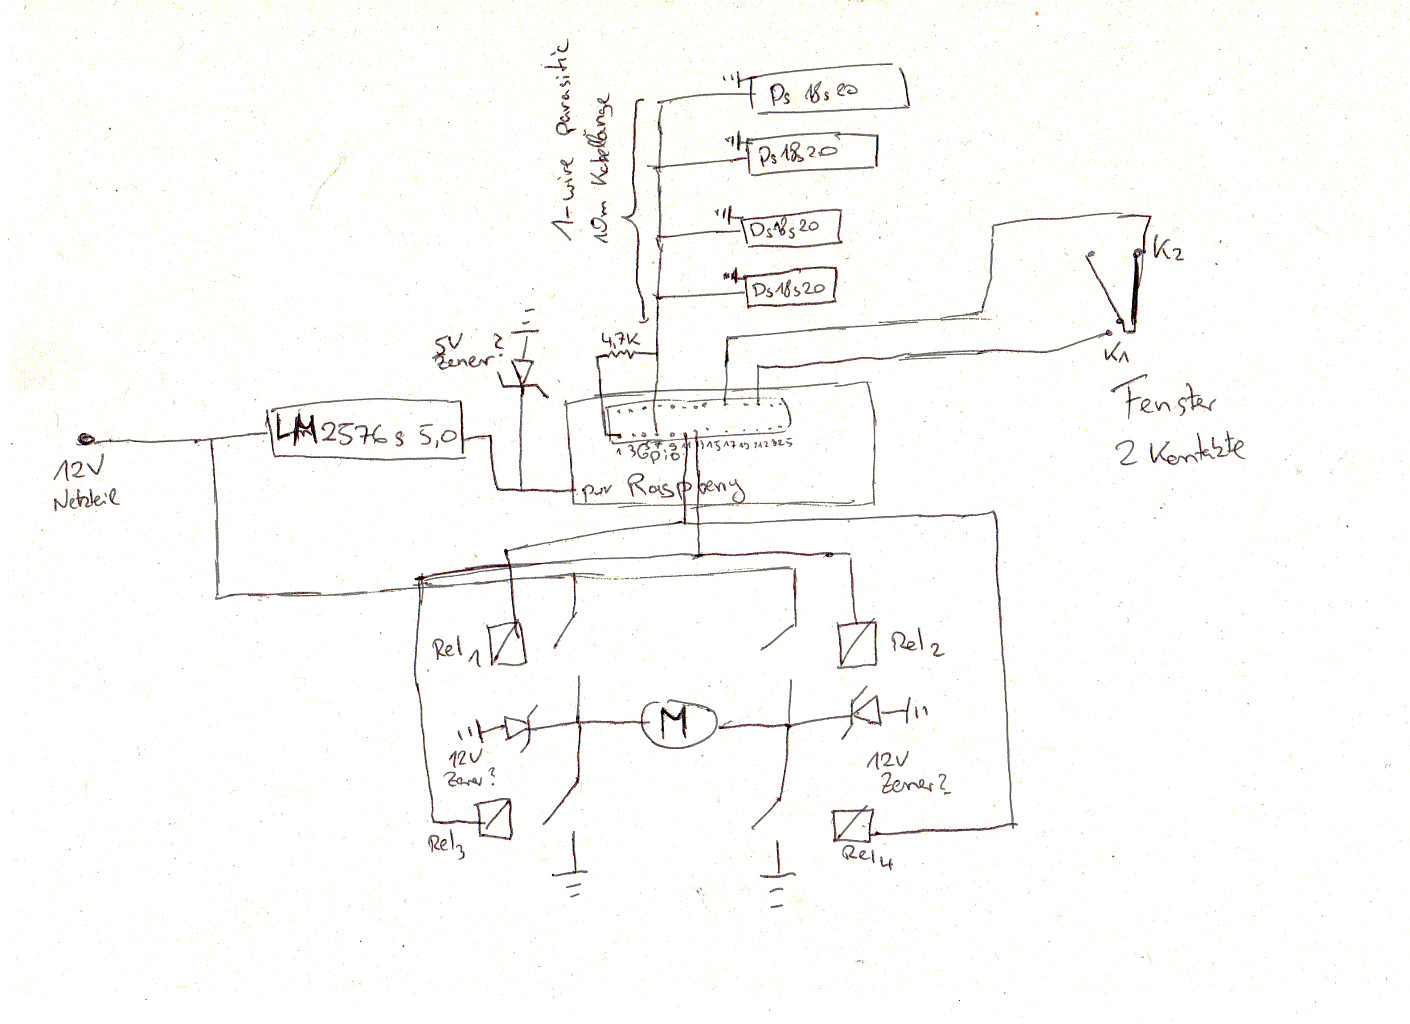 1-wire parasitic
10m Kabellänge
Ds 18s20
Ds18s20
Ds18s20
Ds18s20
4,7K
5V
Zener?
K2
K1
Fenster
2 Kontakte
LM2576s 5,0
12V
Netzteil
1 3 5 7 9 11 13 15 17 19 21 23 25
Gpio
pwr Raspberry
Rel1
Rel2
M
12V
Zener?
12V
Zener?
Rel3
Rel4